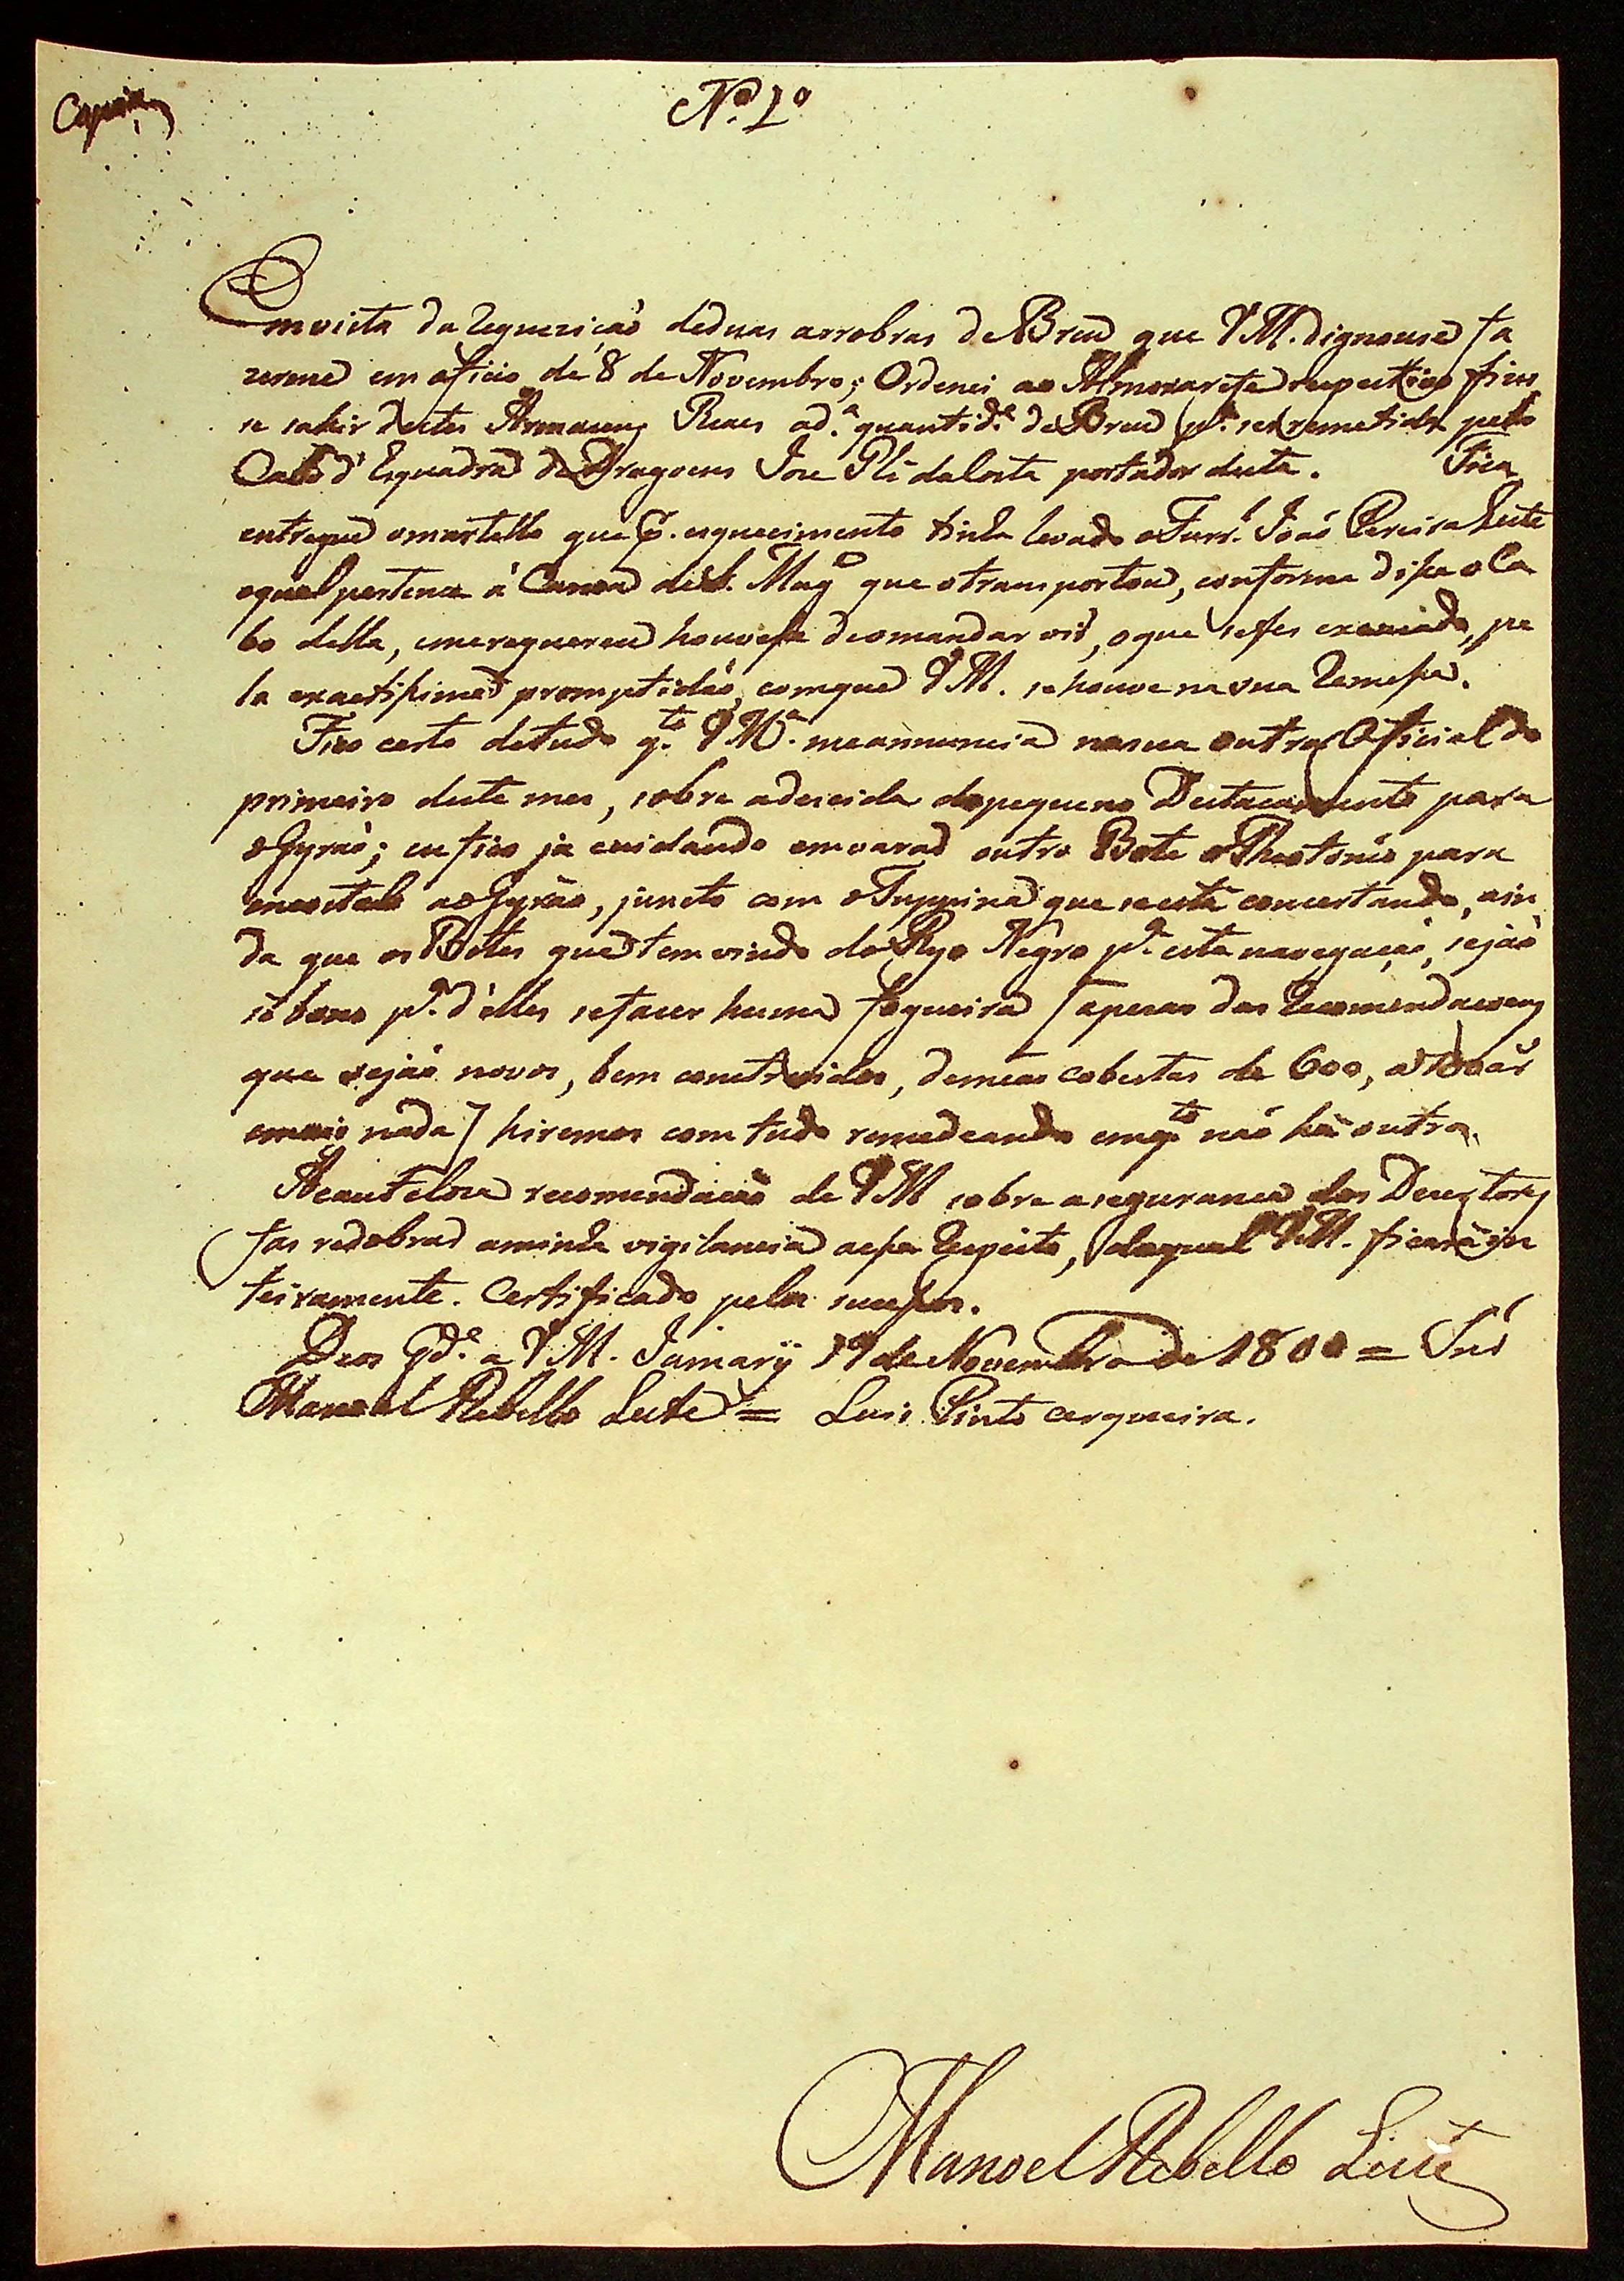 Copia
N.º 1º
Em vista da Requeziçaõ de duas arrobas de Breu que V M. dignouse fa
zerme em oficio de 8 de Novembro; Ordenei ao Almoxarife respectivo fizes
se sahir destes Armazens Reaes a d.ª quantid.e de Breu p.ª ser remetida pelo
Cabo d'Esquadra de Dragoens Joze Plî da Costa portador desta. Fica
entregue o martello que p. esquecimento tinha levado o Furr.l Joaõ Pereira Leite
o qual pertence á Canoa de S. Mag.e que o transportou, conforme disse o Ca
bo della, e me requereu houvesse de o mandar vir, o que se fes exceuado, pe
la exactissima promptidaõ, com que V M. se houve na sua Remessa.
Fico certo de tudo q.to V M.ce me annuncia na sua outra Oficial do
primeiro deste mes, sobre a descida do pequeno Destacamento para
o Gyráo; eu fico ja cuidando em varar outro Bote o Theotonio para
encostalo ao Gyráo, juncto com o Tuppina que se está concertando, ain
da que os Botes que tem vindo do Ryo Negro p.ª esta navegaçaõ, sejaõ
só bons p.ª d'elles se fazer huma fogueira [apezar das Recomendacoens
que sejaõ novos, bem construidos, de meas cobertas de 600, a 700 ar
e mais nada] hiremos com tudo remedeando em q.to naõ há outra.
A cautelosa recomendacaõ de V M sobre a seguranca dos Dezertores
fas redobrar a minha vigilancia a esse Respeito, do qual V.M. ficará in
teiramente Certificado pelos sucessos.
Deos G.de a V M. Jamary 19 de Novembro de 1800 = Snr
Manoel Rebello Leite = Luis Pinto Cerqueira.
Manoel Rebello Leite